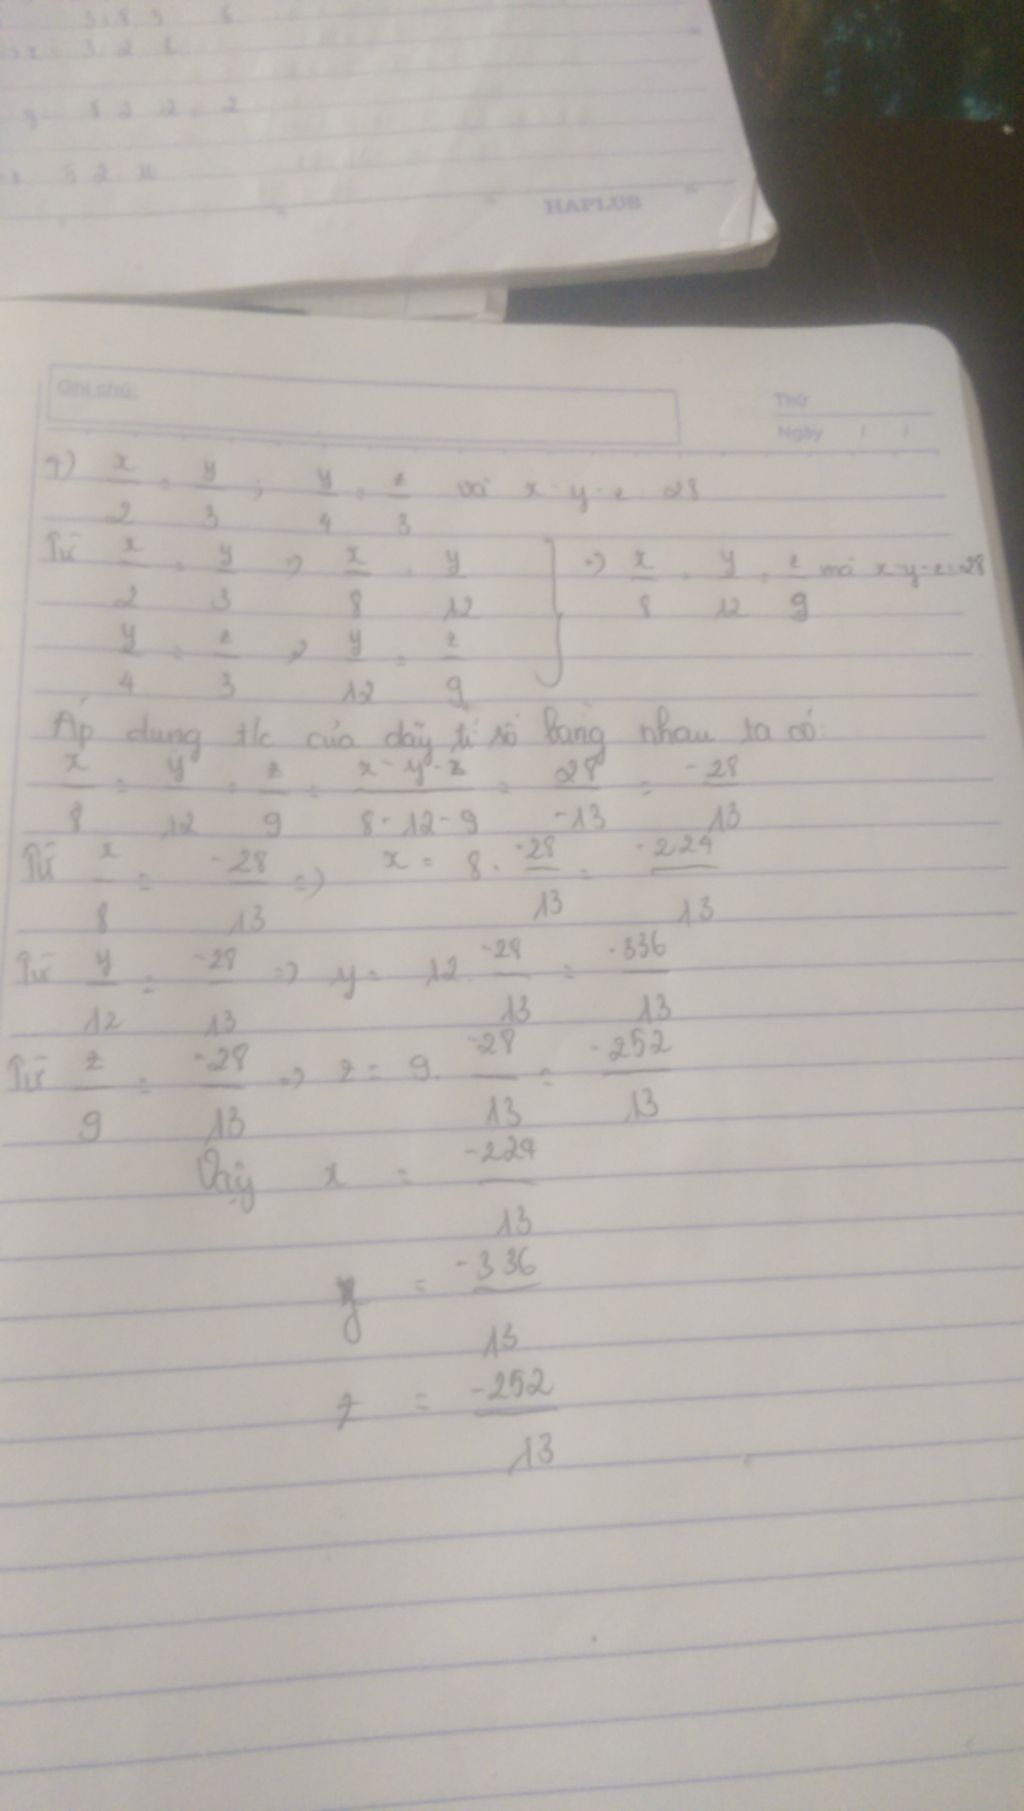 HAPLUS
Ghi chú:
Thứ
Ngày / /
x/2 = y/3 ; y/4 = z/3 với x - y - z = 28
Từ x/2 = y/3 => x/8 = y/12
y/4 = z/3 => y/12 = z/9
} => x/8 = y/12 = z/9 mà x-y-z=28
Áp dụng t/c của dãy tỉ số bằng nhau ta có:
x/8 = y/12 = z/9 = x-y-z/8-12-9 = 28/-13 = -28/13
Từ x/8 = -28/13 => x = 8 . -28/13 = -224/13
Từ y/12 = -28/13 => y = 12 . -28/13 = -336/13
Từ z/9 = -28/13 => z = 9 . -28/13 = -252/13
Vậy x = -224/13
y = -336/13
z = -252/13